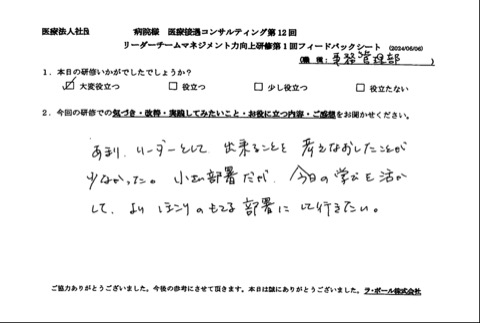 医療法人社団 病院様 医療接遇コンサルティング第12回
リーダーチームマネジメント力向上研修第1回フィードバックシート (2024/06/06)
(職種:事務管理部)
1.本日の研修いかがでしたでしょうか?
☑ 大変役立つ □ 役立つ □ 少し役立つ □ 役立たない
2.今回の研修での気づき・改善・実践してみたいこと・お役に立つ内容・ご感想をお聞かせください。
あまり、リーダーとして 出来ることを 考えなおしたことが
少なかった。小さい部署だが、今日の学びを活か
して、よりほこりのもてる部署にして行きたい。
ご協力ありがとうございました。今後の参考にさせて頂きます。本日は誠にありがとうございました。ラ・ポール株式会社